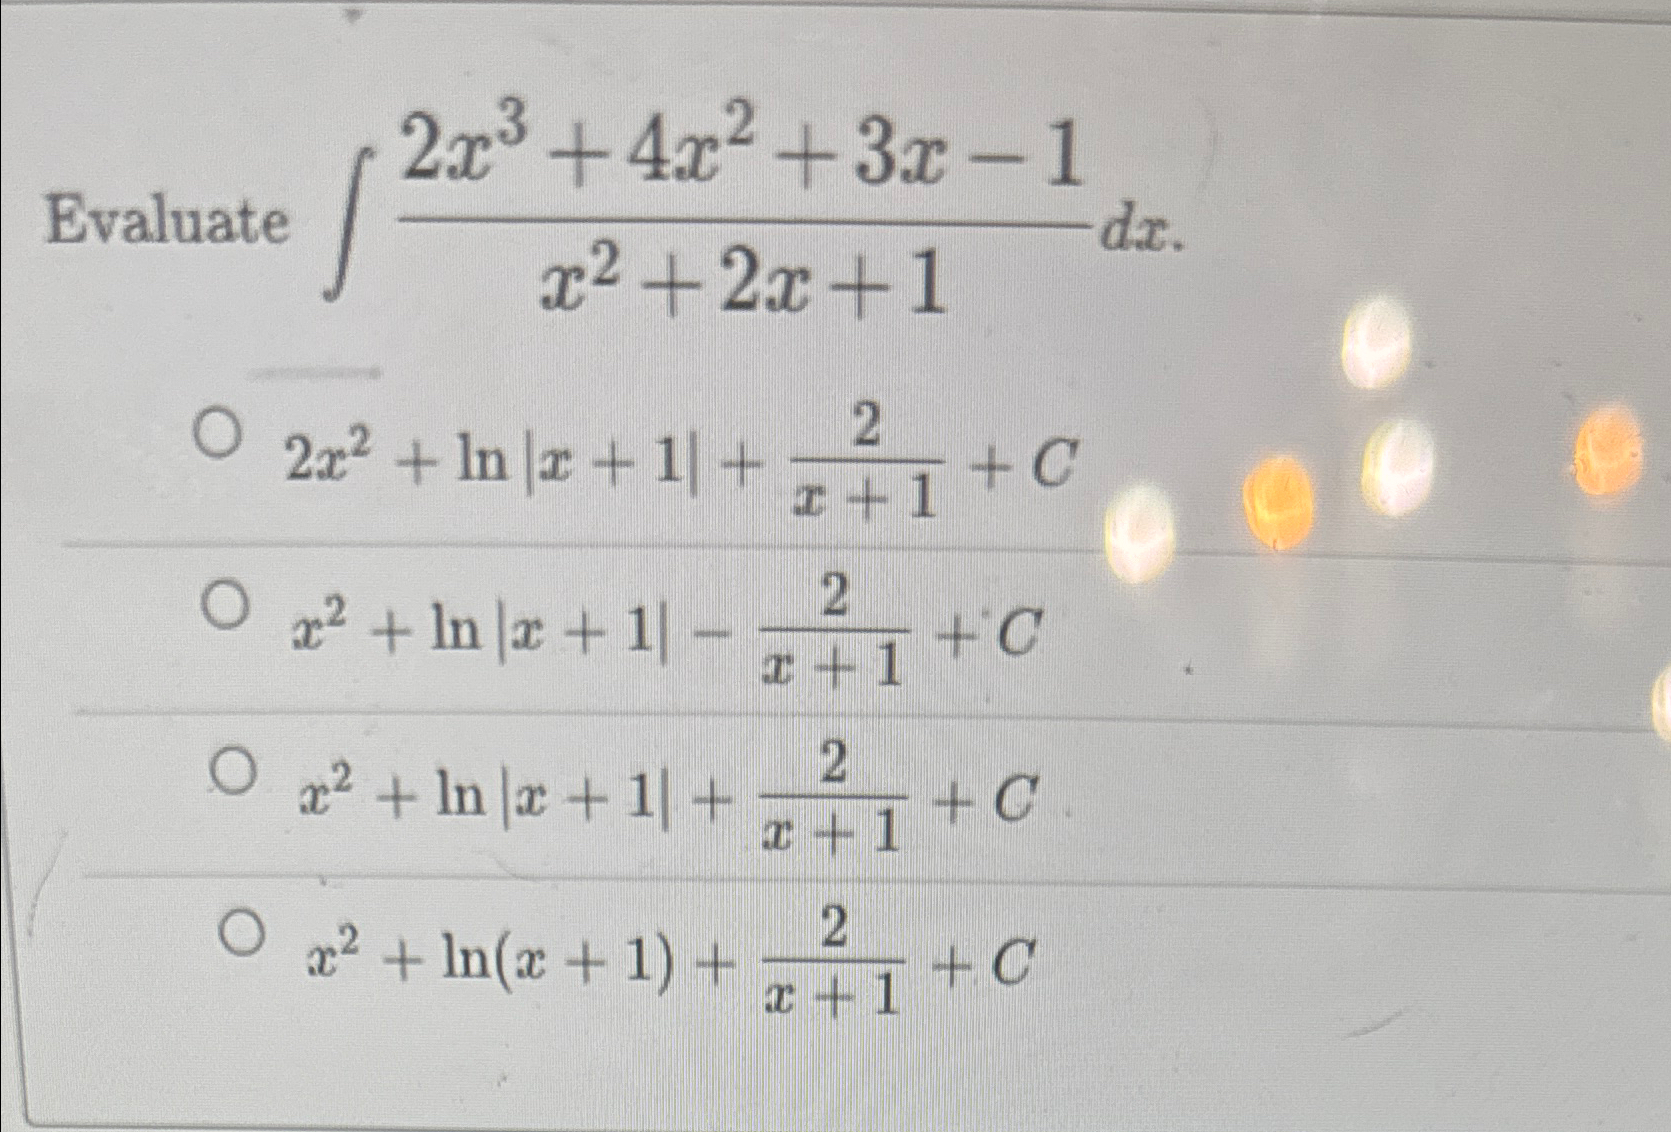 Evaluate ∫ (2x³ + 4x² + 3x − 1)/(x² + 2x + 1) dx.
2x² + ln|x + 1| + 2/(x + 1) + C
x² + ln|x + 1| − 2/(x + 1) + C
x² + ln|x + 1| + 2/(x + 1) + C
x² + ln(x + 1) + 2/(x + 1) + C